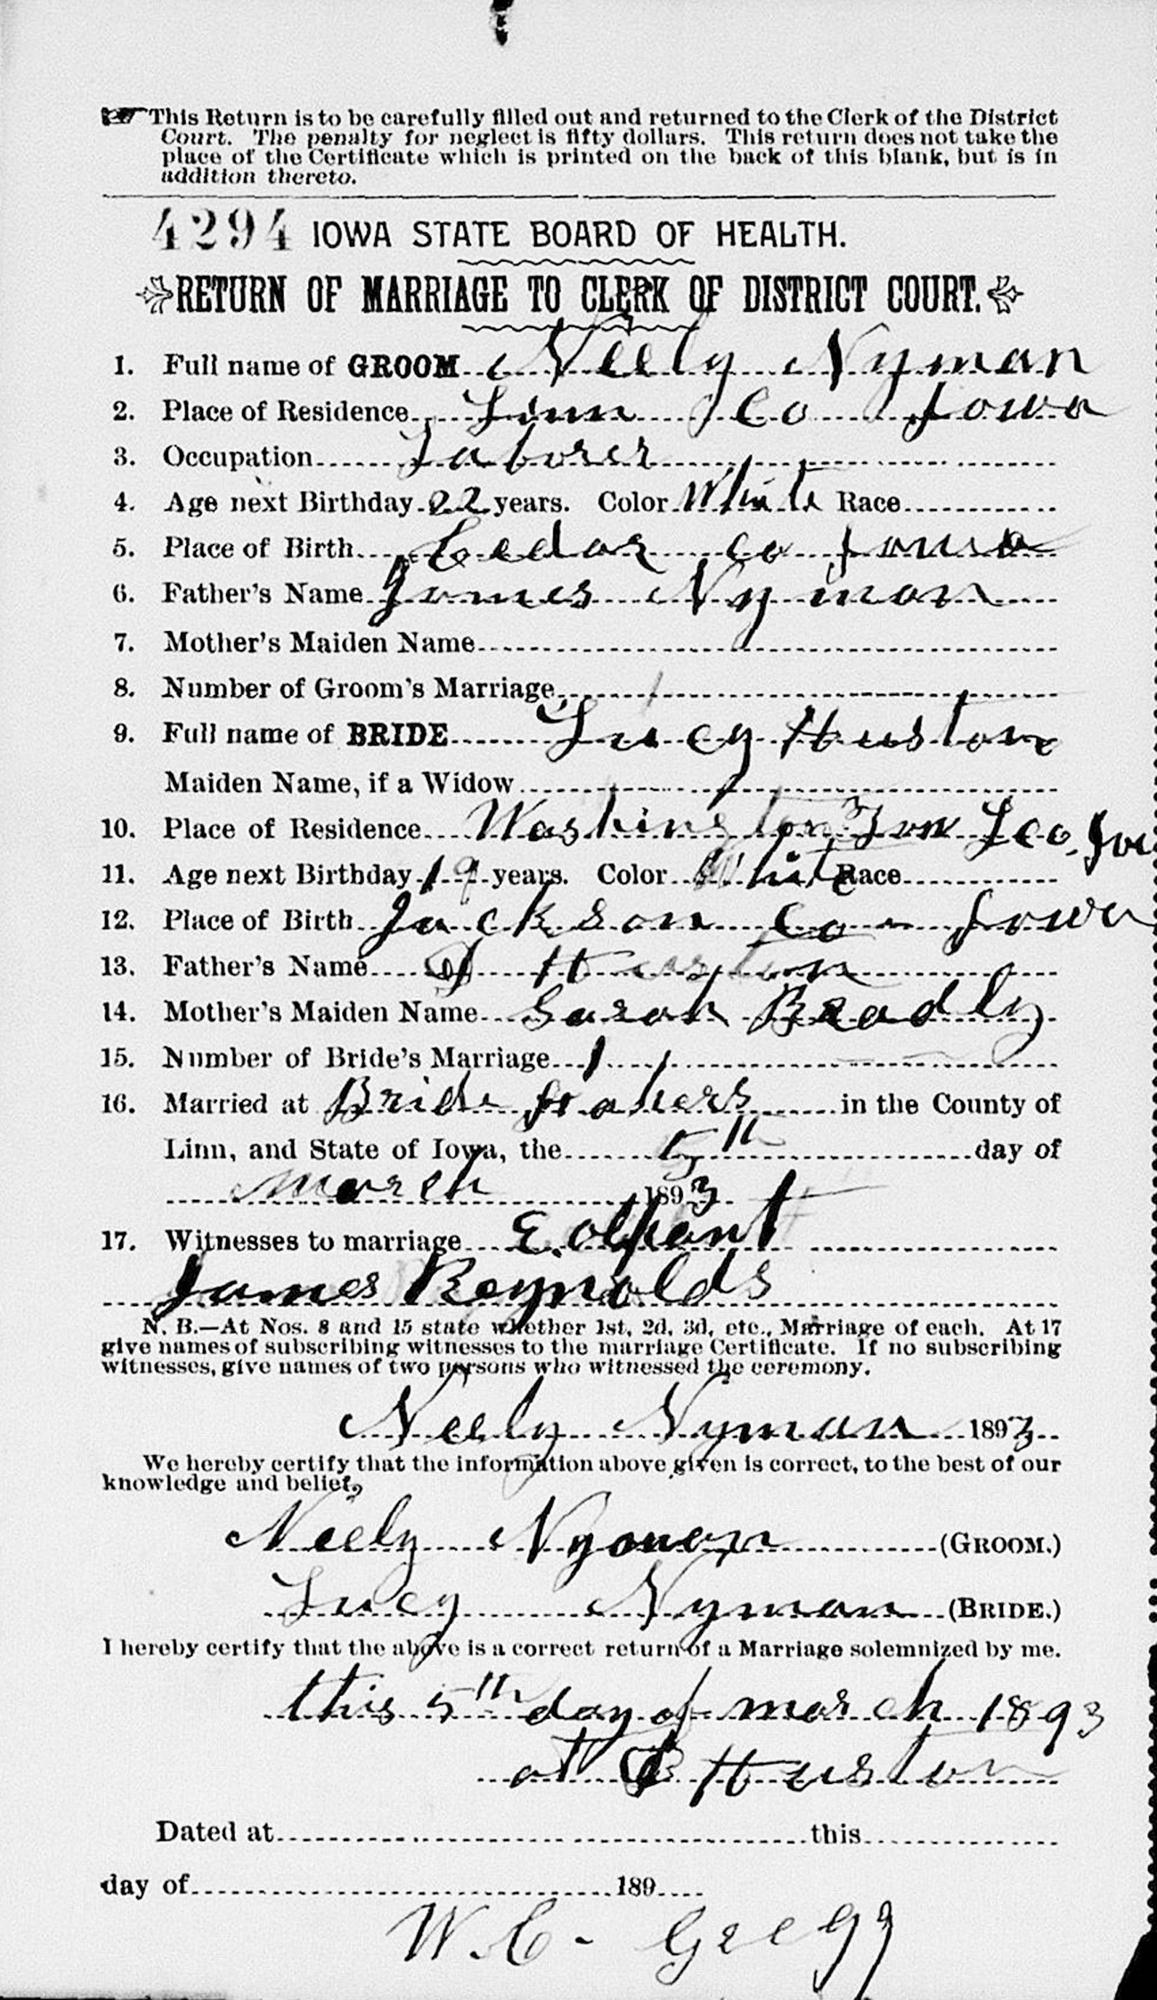 This Return is to be carefully filled out and returned to the Clerk of the District
Court. The penalty for neglect is fifty dollars. This return does not take the
place of the Certificate which is printed on the back of this blank, but is in
addition thereto.
4294 IOWA STATE BOARD OF HEALTH.
RETURN OF MARRIAGE TO CLERK OF DISTRICT COURT.
1. Full name of GROOM Neely Nyman
2. Place of Residence Linn Co Iowa
3. Occupation Laborer
4. Age next Birthday 22 years. Color White Race
5. Place of Birth Cedar co Iowa
6. Father's Name James Nyman
7. Mother's Maiden Name
8. Number of Groom's Marriage 1
9. Full name of BRIDE Lucy Huston
Maiden Name, if a Widow
10. Place of Residence Washington
11. Age next Birthday 19 years. Color White Race
12. Place of Birth Jackson Co Iowa
13. Father's Name Huston
14. Mother's Maiden Name Sarah Beadly
15. Number of Bride's Marriage 1
16. Married at Bride in the County of
Linn, and State of Iowa, the 5th day of
march 1893
17. Witnesses to marriage E.
James Reynolds
N. B.—At Nos. 8 and 15 state whether 1st, 2d, 3d, etc., Marriage of each. At 17
give names of subscribing witnesses to the marriage Certificate. If no subscribing
witnesses, give names of two persons who witnessed the ceremony.
Neely Nyman 1893
We hereby certify that the information above given is correct, to the best of our
knowledge and belief,
Neely Nyman (GROOM.)
Lucy Nyman (BRIDE.)
I hereby certify that the above is a correct return of a Marriage solemnized by me.
this 5th day of march 1893
at Huston
Dated at this
day of 189
W. C. Gregg